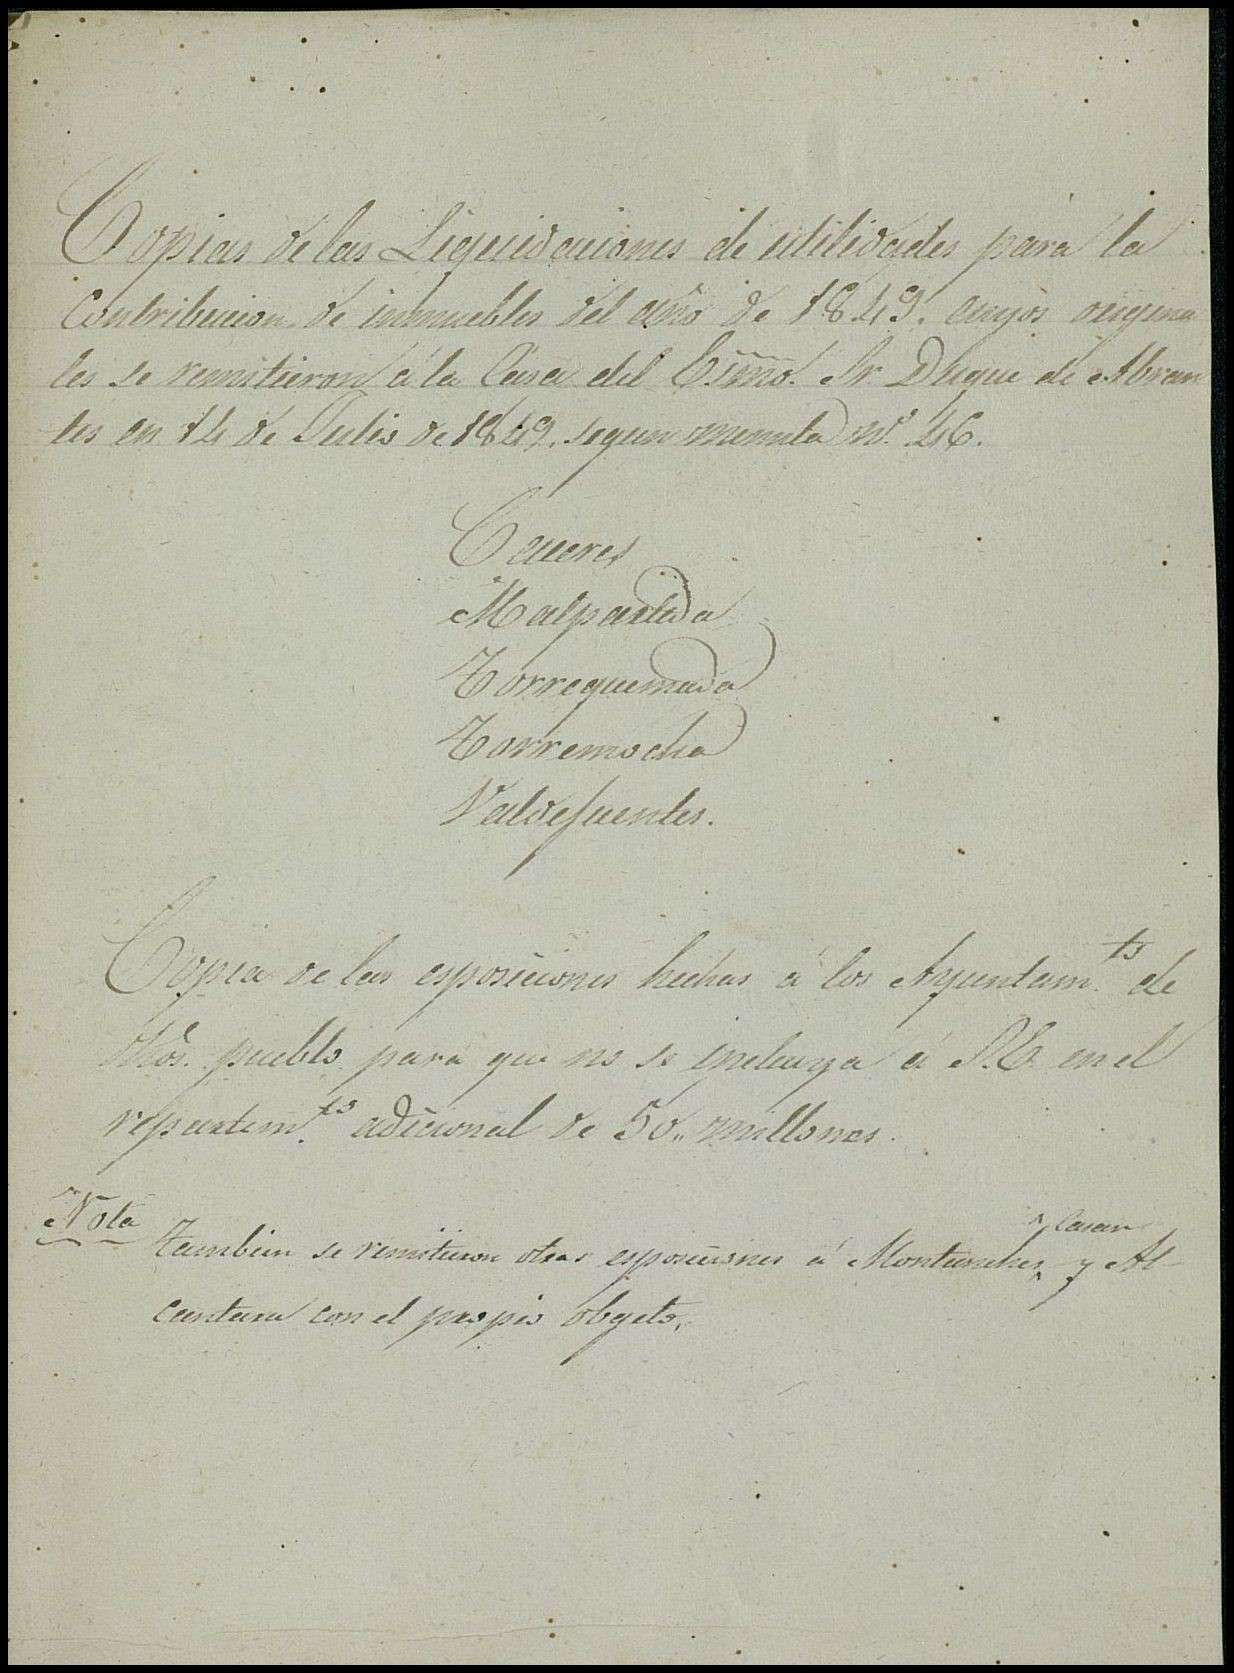 Copias de las Liquidaciones de utilidades para la
Contribucion de inmuebles del año de 1849. cuyos origina
les se remitieron á la Casa del Esmo. Sr. Duque de Abran
tes en 14 de Julio de 1849, segun minuta nº. 46.
Caceres
Malpartida
Torrequemada
Torremocha
Valdefuentes.
Copia de las esposiciones hechas á los Ayuntam.tos de
dhos. pueblo para que no se incluya á S.E. en el
repartim.to adicional de 50,, millones.
Nota
Tambien se remitieron otras esposiciones á Montanches, y Al-
cantara con el propio objeto.